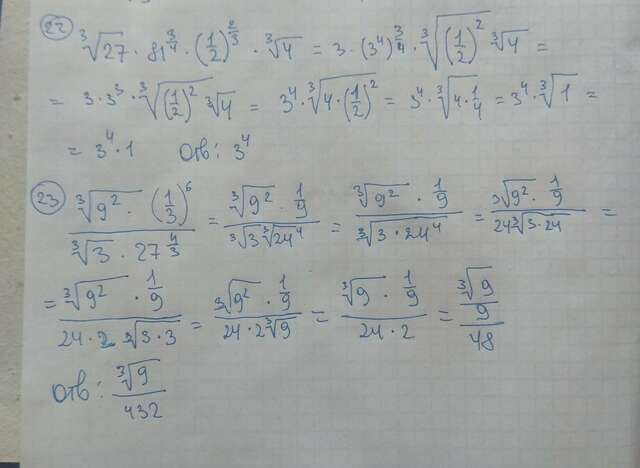 22 ∛27 · 81^(3/4) · (1/2)^(2/3) · ∛4 = 3 · (3^4)^(3/4) · ∛((1/2)^2) ∛4 =
= 3 · 3^3 · ∛((1/2)^2) ∛4 = 3^4 · ∛(4 · (1/2)^2) = 3^4 · ∛(4 · 1/4) = 3^4 · ∛1 =
= 3^4 · 1 Отв: 3^4
23 (∛(9^2) · (1/3)^6)/(∛3 · 27^(4/3)) = (∛(9^2) · 1/9)/(∛3 ∛(24^4)) = (∛(9^2) · 1/9)/(∛(3 · 24^4)) = (∛(9^2) · 1/9)/(24 ∛(3 · 24)) =
= (∛(9^2) · 1/9)/(24 · 2 ∛(3 · 3)) = (∛(9^2) · 1/9)/(24 · 2 ∛9) = (∛9 · 1/9)/(24 · 2) = (∛9/9)/48
Отв: ∛9/432